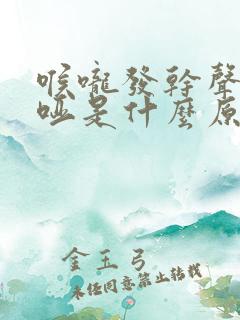 喉嚨發幹聲
啞是什麼原
金玉弓
未經同意禁止轉載